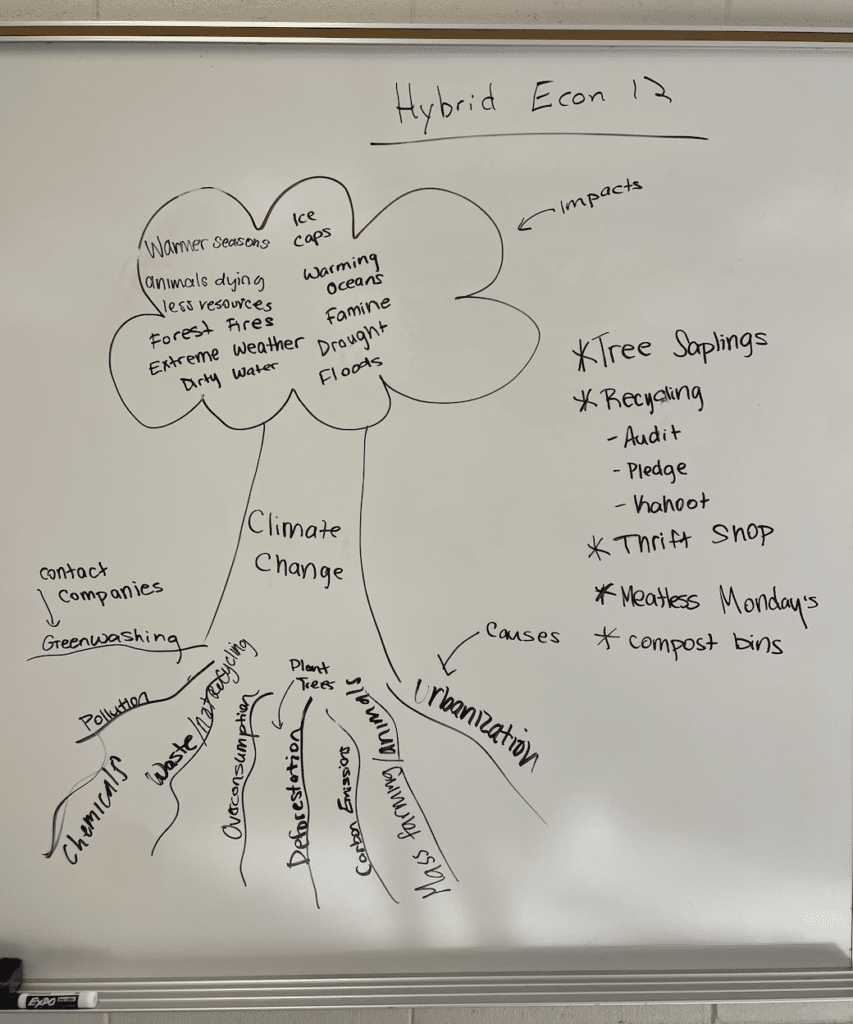 Hybrid Econ 12
Impacts
Warmer seasons
animals dying
less resources
Forest Fires
Extreme Weather
Dirty Water
Ice
caps
Warming
Oceans
Famine
Drought
Floods
*Tree Saplings
*Recycling
- Audit
- Pledge
- Kahoot
* Thrift Shop
* Meatless Monday's
* compost bins
Climate
Change
contact
companies
Greenwashing
Causes
Pollution
Chemicals
Waste/not recycling
Overconsumption
Plant
Trees
Deforestation
Carbon Emissions
Mass farming/animals
Urbanization
EXPO